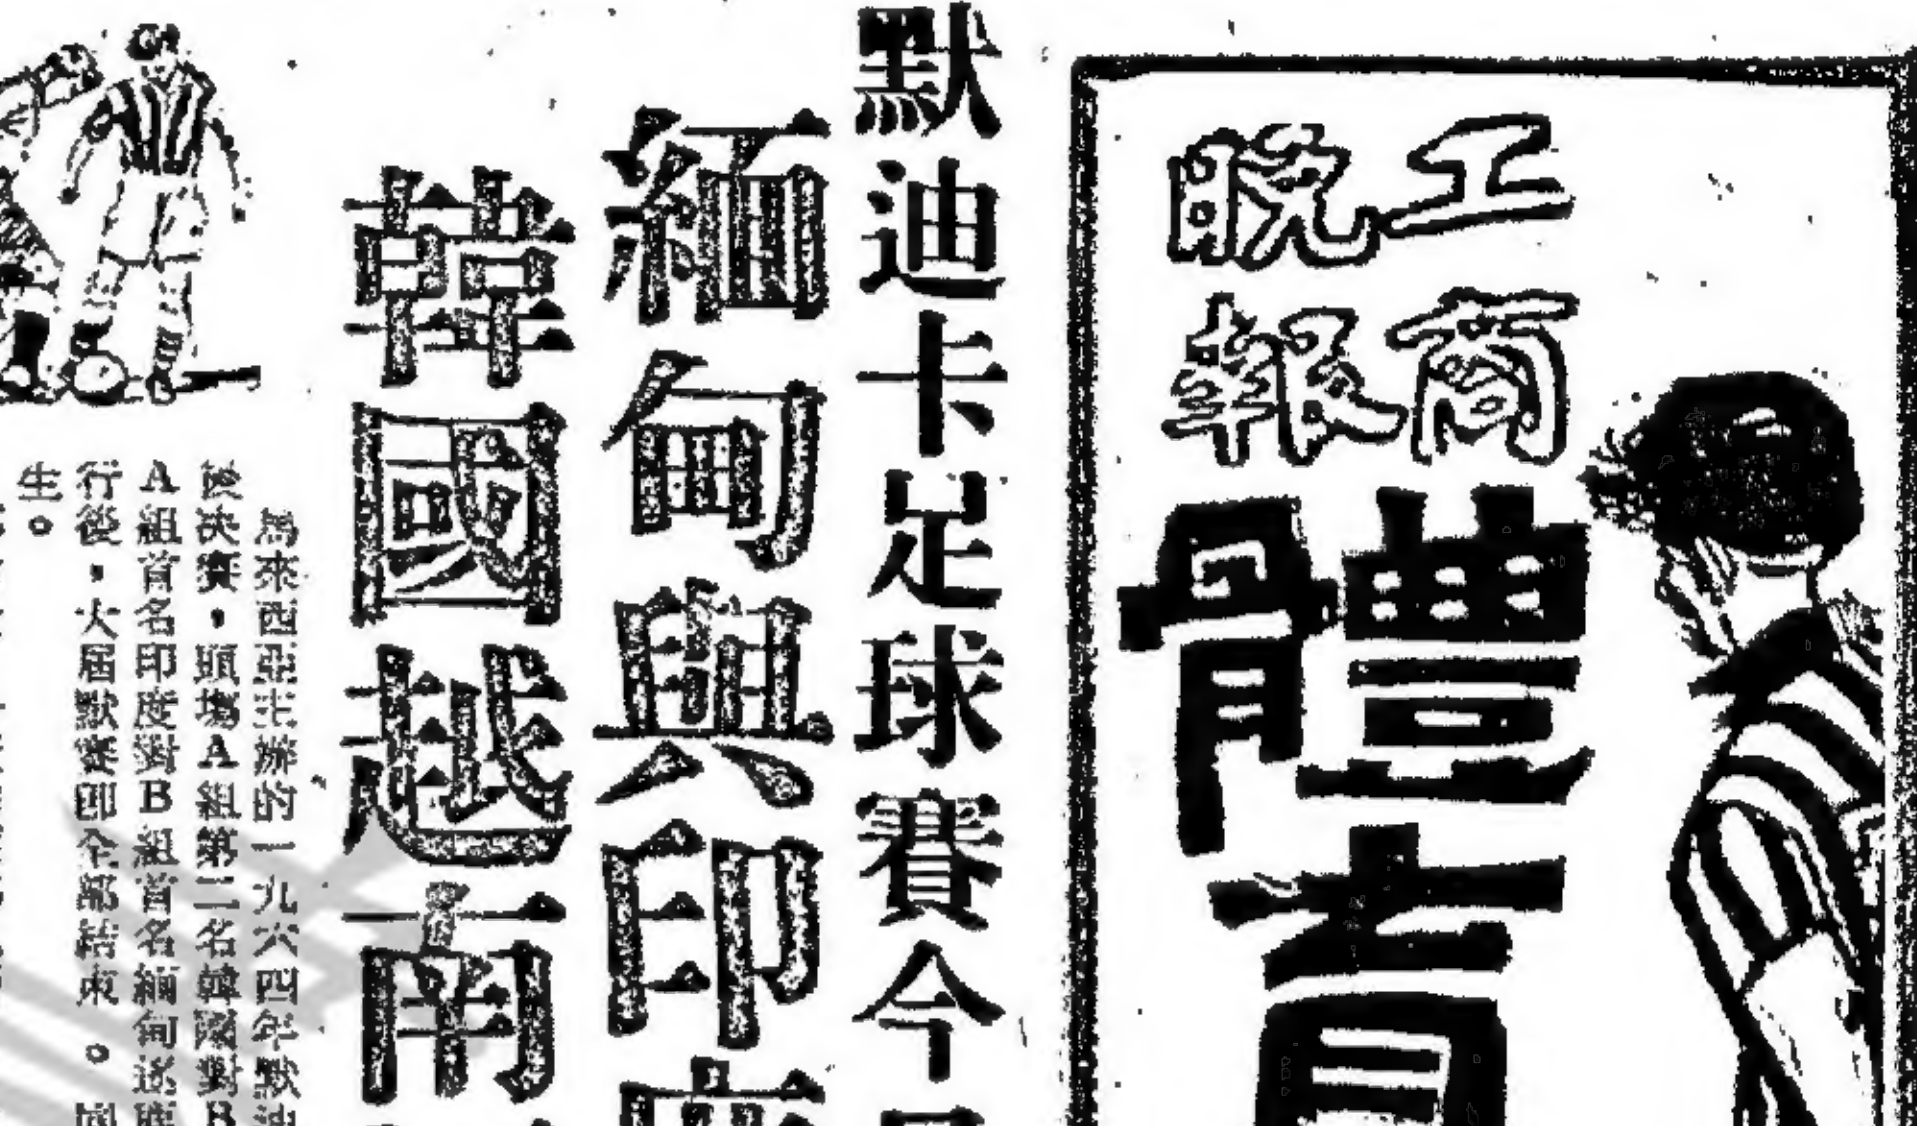 工商
晚報
體育
默迪卡足球賽今
緬甸與印度
韓國越南
馬來西亞主辦的一九六四年默迪
後決賽，頭塲A組第二名韓國對B
A組首名印度對B組首名緬甸
行後，大屆默賽即全部結束。
生。